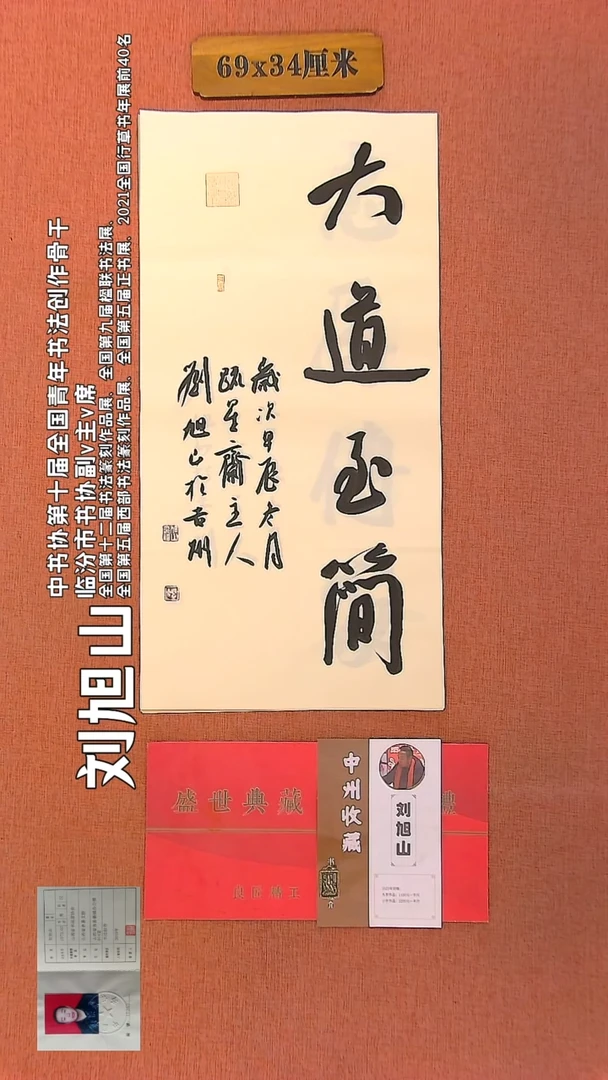 69x34厘米
大道至簡
歲次甲辰冬月
疏星齋主人
劉旭山於吉州
中书协第十届全国青年书法创作骨干
临汾市书协副v主v席
全国第十二届书法篆刻作品展、全国第九届楹联书法展、
全国第五届西部书法篆刻作品展、全国第五届正书展、2021全国行草书年展前40名
刘旭山
盛世典藏
中州收藏
刘旭山